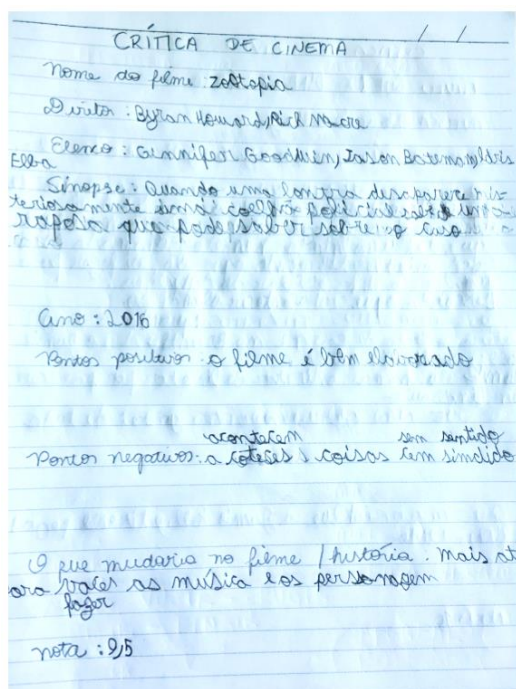 CRÍTICA DE CINEMA
Nome do filme: zootopia
Diretor: Byran Howard, Rich
Elenco: Gennifer Goodwin, Jason Bateman, Idris
Elba
Sinopse: Quando uma lontra desaparece mis-
teriosamente uma policial
raposa que pode saber sobre o caso
Ano: 2016
Pontos positivos: o filme é bem elaborado
acontecem sem sentido
Pontos negativos: a coisas sem simdido
O que mudaria no filme / história. mais at
ora voces as música e os personagem
fazer
nota: 9,5